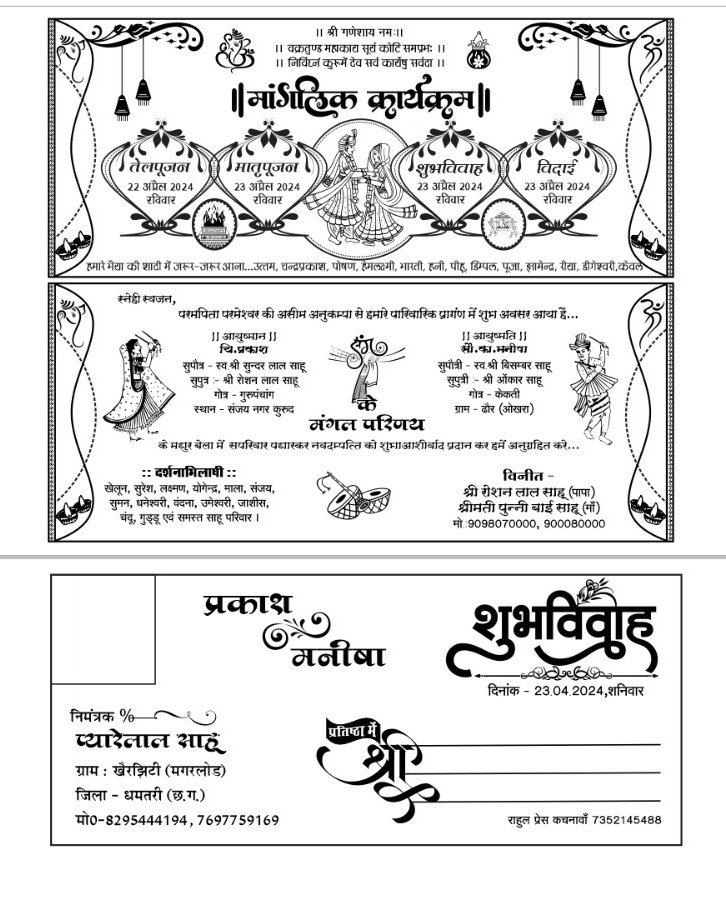 ।। श्री गणेशाय नमः।।
।। वक्रतुण्ड महाकाय सूर्य कोटि समप्रभः ।।
।। निर्विघ्नं कुरूमें देव सर्व कार्येषु सर्वदा ।।
॥मांगलिक कार्यक्रम॥
तेलपूजन
22 अप्रैल 2024
रविवार
मातृपूजन
23 अप्रैल 2024
रविवार
शुभविवाह
23 अप्रैल 2024
रविवार
विदाई
23 अप्रैल 2024
रविवार
हमारे भैया की शादी में जरूर-जरूर आना...उत्तम, चन्द्रप्रकाश, पोषण, हेमलक्ष्मी, भारती, हनी, पीहू, डिम्पल, पूजा, ज्ञामेन्द्र, रीद्या, डीगेश्वरी,केवल
स्नेही स्वजन,
परमपिता परमेश्वर की असीम अनुकम्पा से हमारे पारिवारिक प्रागंण में शुभ अवसर आया है...
|| आयुष्मान ||
चि.प्रकाश
सुपौत्र - स्व.श्री सुन्दर लाल साहू
सुपुत्र :- श्री रोशन लाल साहू
गोत्र - गुरुपंचांग
स्थान - संजय नगर कुरुद
संग
|| आयुष्मति ||
सौ.का.मनीषा
सुपौत्री - स्व.श्री बिसम्बर साहू
सुपुत्री :- श्री ओंकार साहू
गोत्र - केकती
ग्राम - ढौर (ओखरा)
के
मंगल परिणय
के मधुर बेला में सपरिवार पधारकर नवदम्पत्ति को शुभआशीर्वाद प्रदान कर हमें अनुग्रहित करे...
:: दर्शनाभिलाषी ::
खेलून, सुरेश, लक्ष्मण, योगेन्द्र, माला, संजय,
सुमन, धनेश्वरी, वंदना, उमेश्वरी, जाशीस,
चंदू, गुड्डू एवं समस्त साहू परिवार ।
विनीत -
श्री रोशन लाल साहू (पापा)
श्रीमती पुन्नी बाई साहू (माँ)
मो.:9098070000, 900080000
प्रकाश
मनीषा
शुभविवाह
दिनांक - 23.04.2024,शनिवार
निमंत्रक %
प्यारेलाल साहू
ग्राम : खैरझिटी (मगरलोड)
जिला - धमतरी (छ.ग.)
मो0-8295444194, 7697759169
प्रतिष्ठा में
श्री
राहुल प्रेस कचनावाँ 7352145488